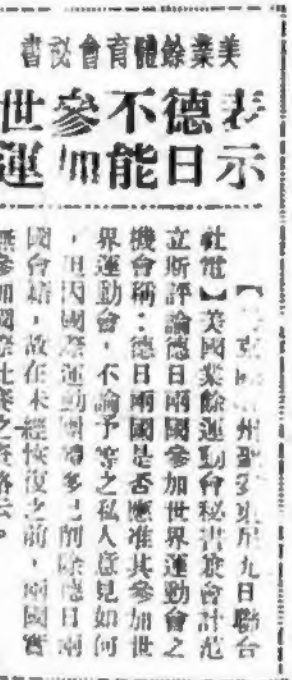 美業餘體育會秘書
表示
德日
不能
參加
世運
州聖安東尼九日聯合
社電】美國業餘運動會秘書兼會計范
立斯評論德日兩國參加世界運動會之
機會稱:德日兩國是否應准其參加世
界運動會,不論予等之私人意見如何
,但因國際運動團體多已削除德日兩
國會籍,故在未經恢復之前,兩國實
無參加國際比賽之資格云。